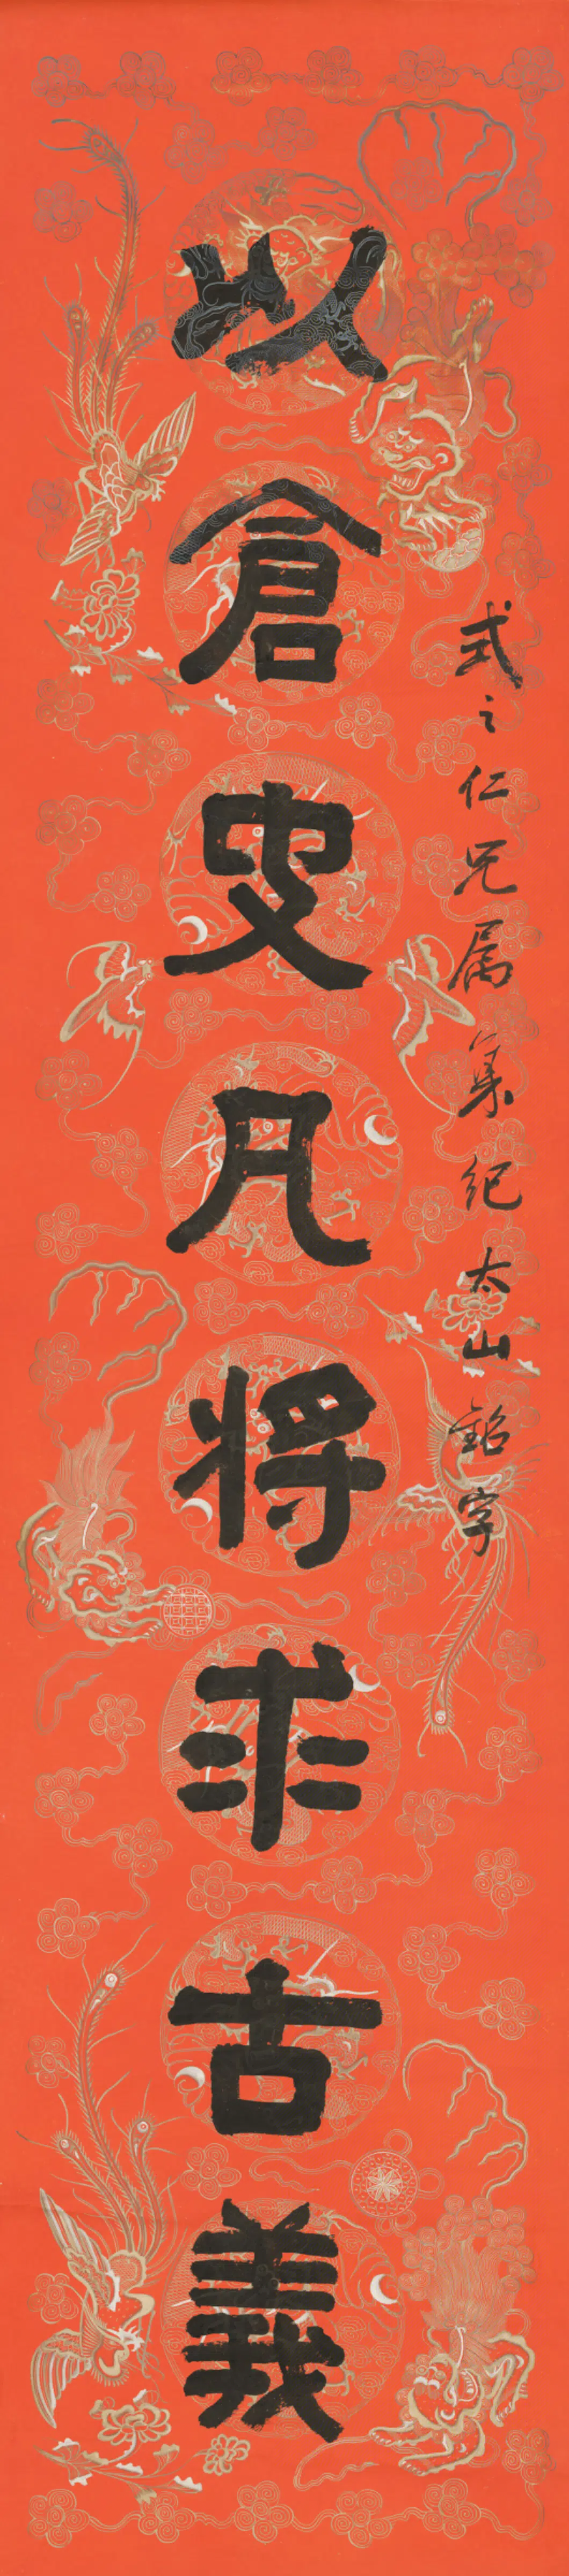 式之仁兄属集紀太山銘字
以倉史凡將求古義